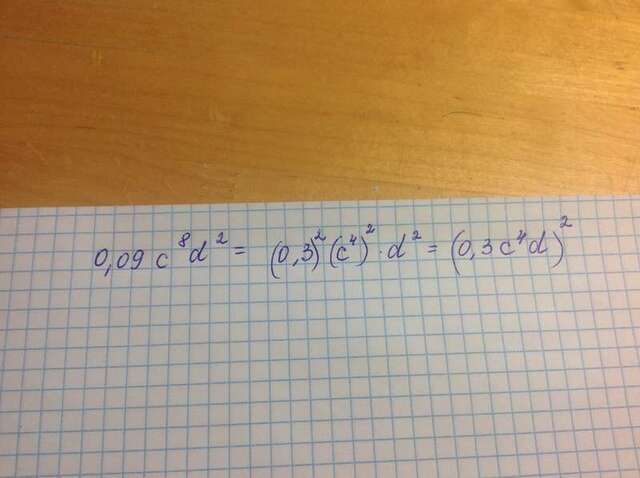 0,09 c⁸d² = (0,3)²(c⁴)² · d² = (0,3 c⁴d)²